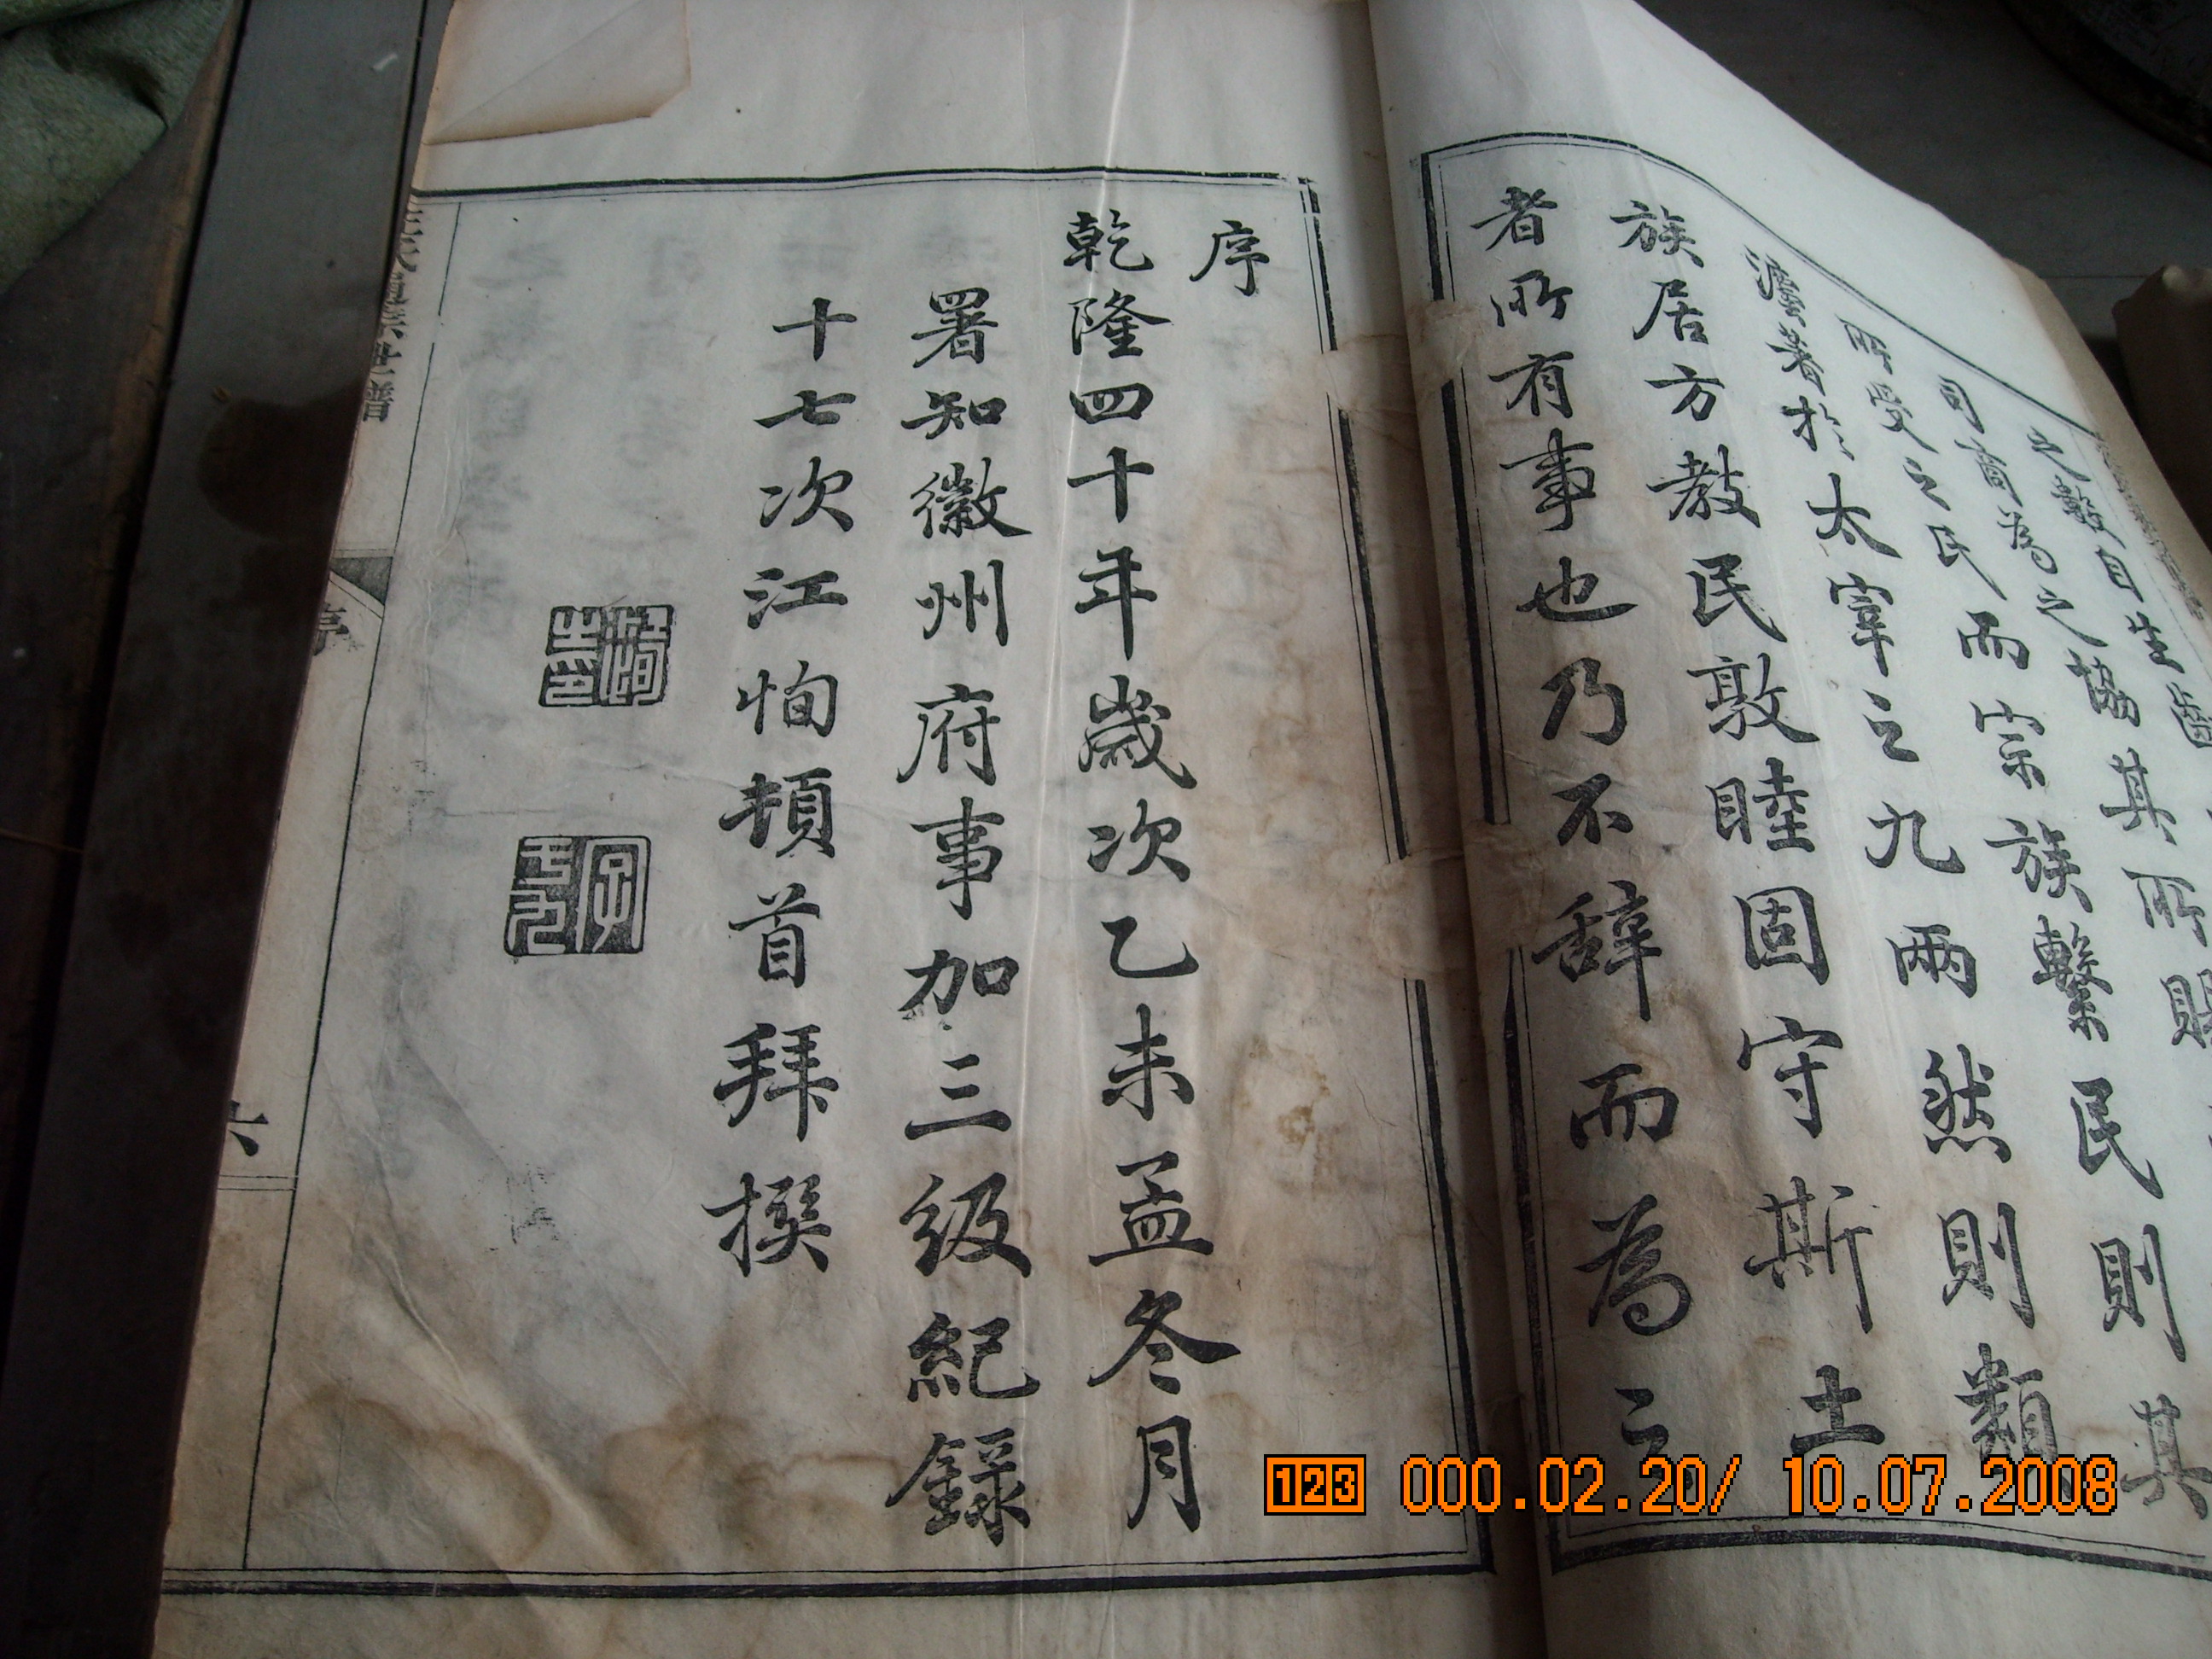 之數自生齒
司商為之協其所賜
所受之氏而宗族繫民則其
著於太宰之九兩然則類
族居方教民敦睦固守斯土
者所有事也乃不辭而為之
序
乾隆四十年歲次乙未孟冬月
署知徽州府事加三級紀錄
十七次江恂頓首拜撰
江恂之印
字于九
世譜
序
六
123 000.02.20/ 10.07.2008